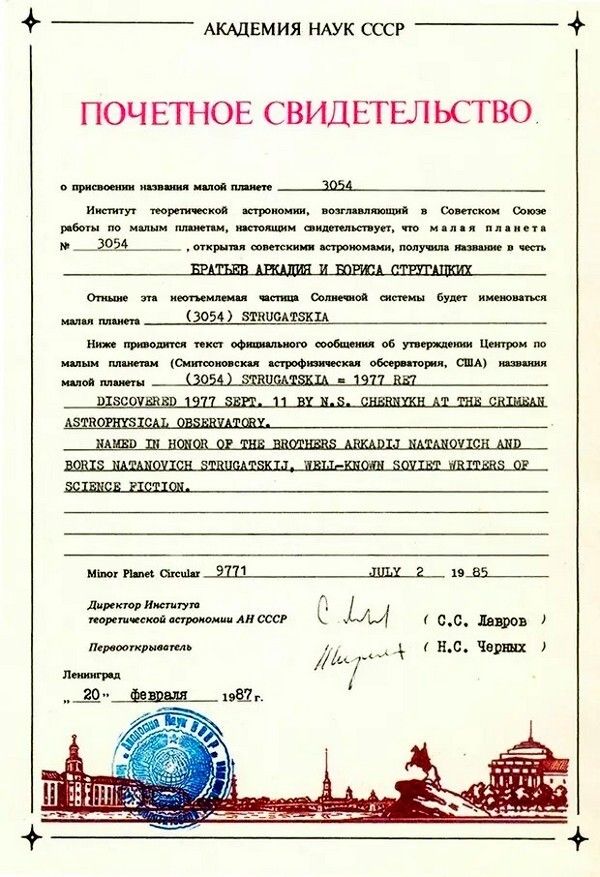 АКАДЕМИЯ НАУК СССР
ПОЧЕТНОЕ СВИДЕТЕЛЬСТВО
о присвоении названия малой планете 3054
Институт теоретической астрономии, возглавляющий в Советском Союзе
работы по малым планетам, настоящим свидетельствует, что малая планета
№ 3054 , открытая советскими астрономами, получила название в честь
БРАТЬЕВ АРКАДИЯ И БОРИСА СТРУГАЦКИХ
Отныне эта неотъемлемая частица Солнечной системы будет именоваться
малая планета (3054) STRUGATSKIA
Ниже приводится текст официального сообщения об утверждении Центром по
малым планетам (Смитсоновская астрофизическая обсерватория, США) названия
малой планеты (3054) STRUGATSKIA = 1977 RE7
DISCOVERED 1977 SEPT. 11 BY N.S. CHERNYKH AT THE CRIMEAN
ASTROPHYSICAL OBSERVATORY.
NAMED IN HONOR OF THE BROTHERS ARKADIJ NATANOVICH AND
BORIS NATANOVICH STRUGATSKIJ, WELL-KNOWN SOVIET WRITERS OF
SCIENCE FICTION.
Minor Planet Circular 9771 JULY 2 1985
Директор Института
теоретической астрономии АН СССР ( С.С. Лавров )
Первооткрыватель ( Н.С. Черных )
Ленинград
„ 20 " февраля 1987 г.